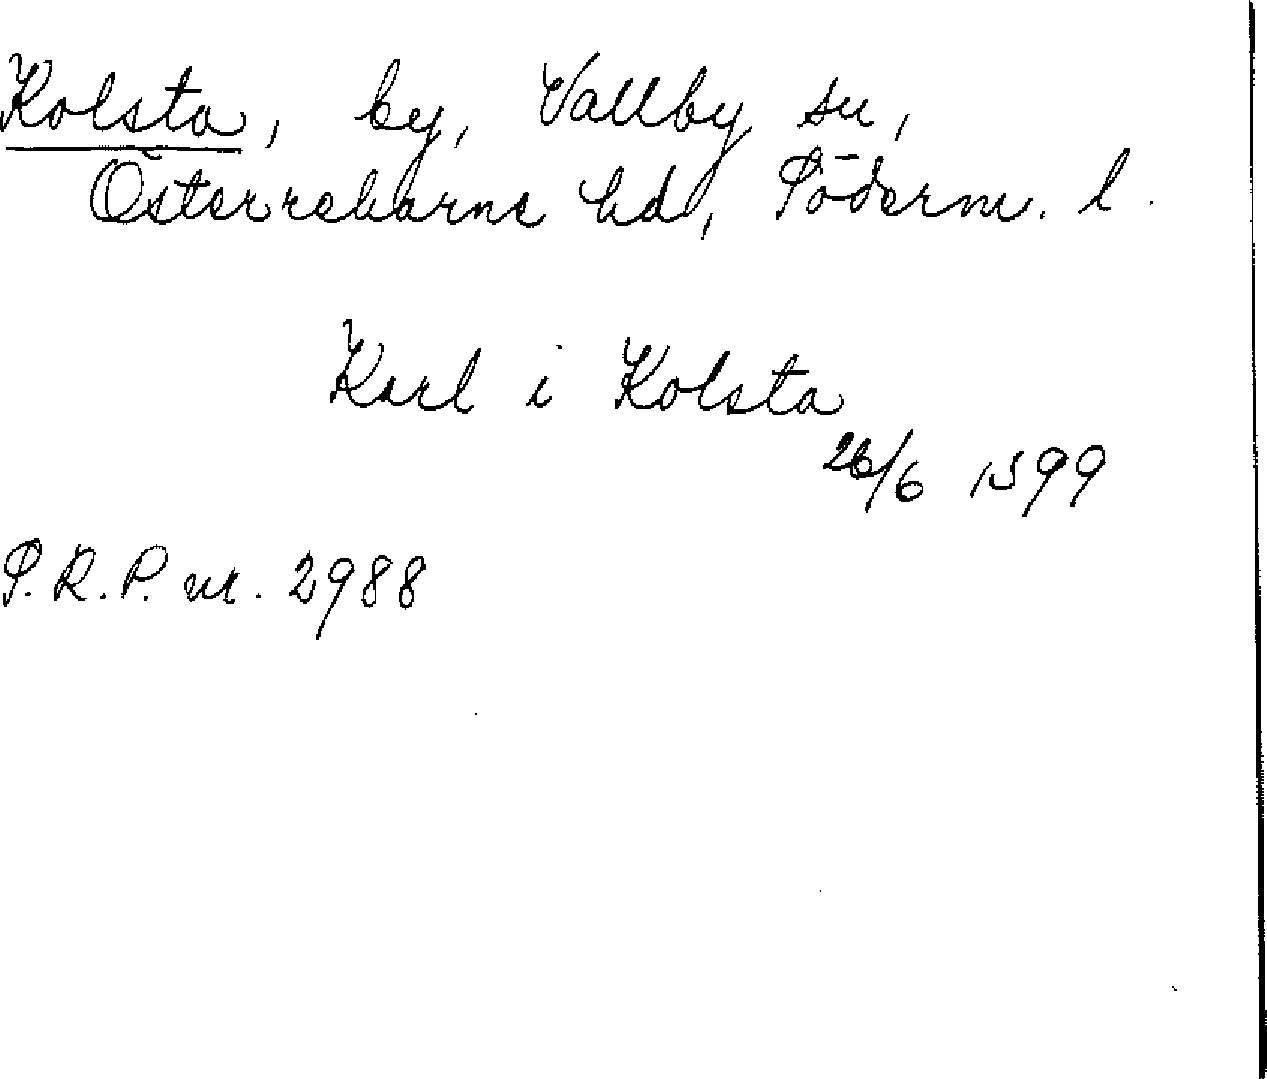 Kolsta, by, Vallby sn,
Österrekarne hd, Söderm. l.
Karl i Kolsta
26/6 1599
S.R.P. nr. 2988